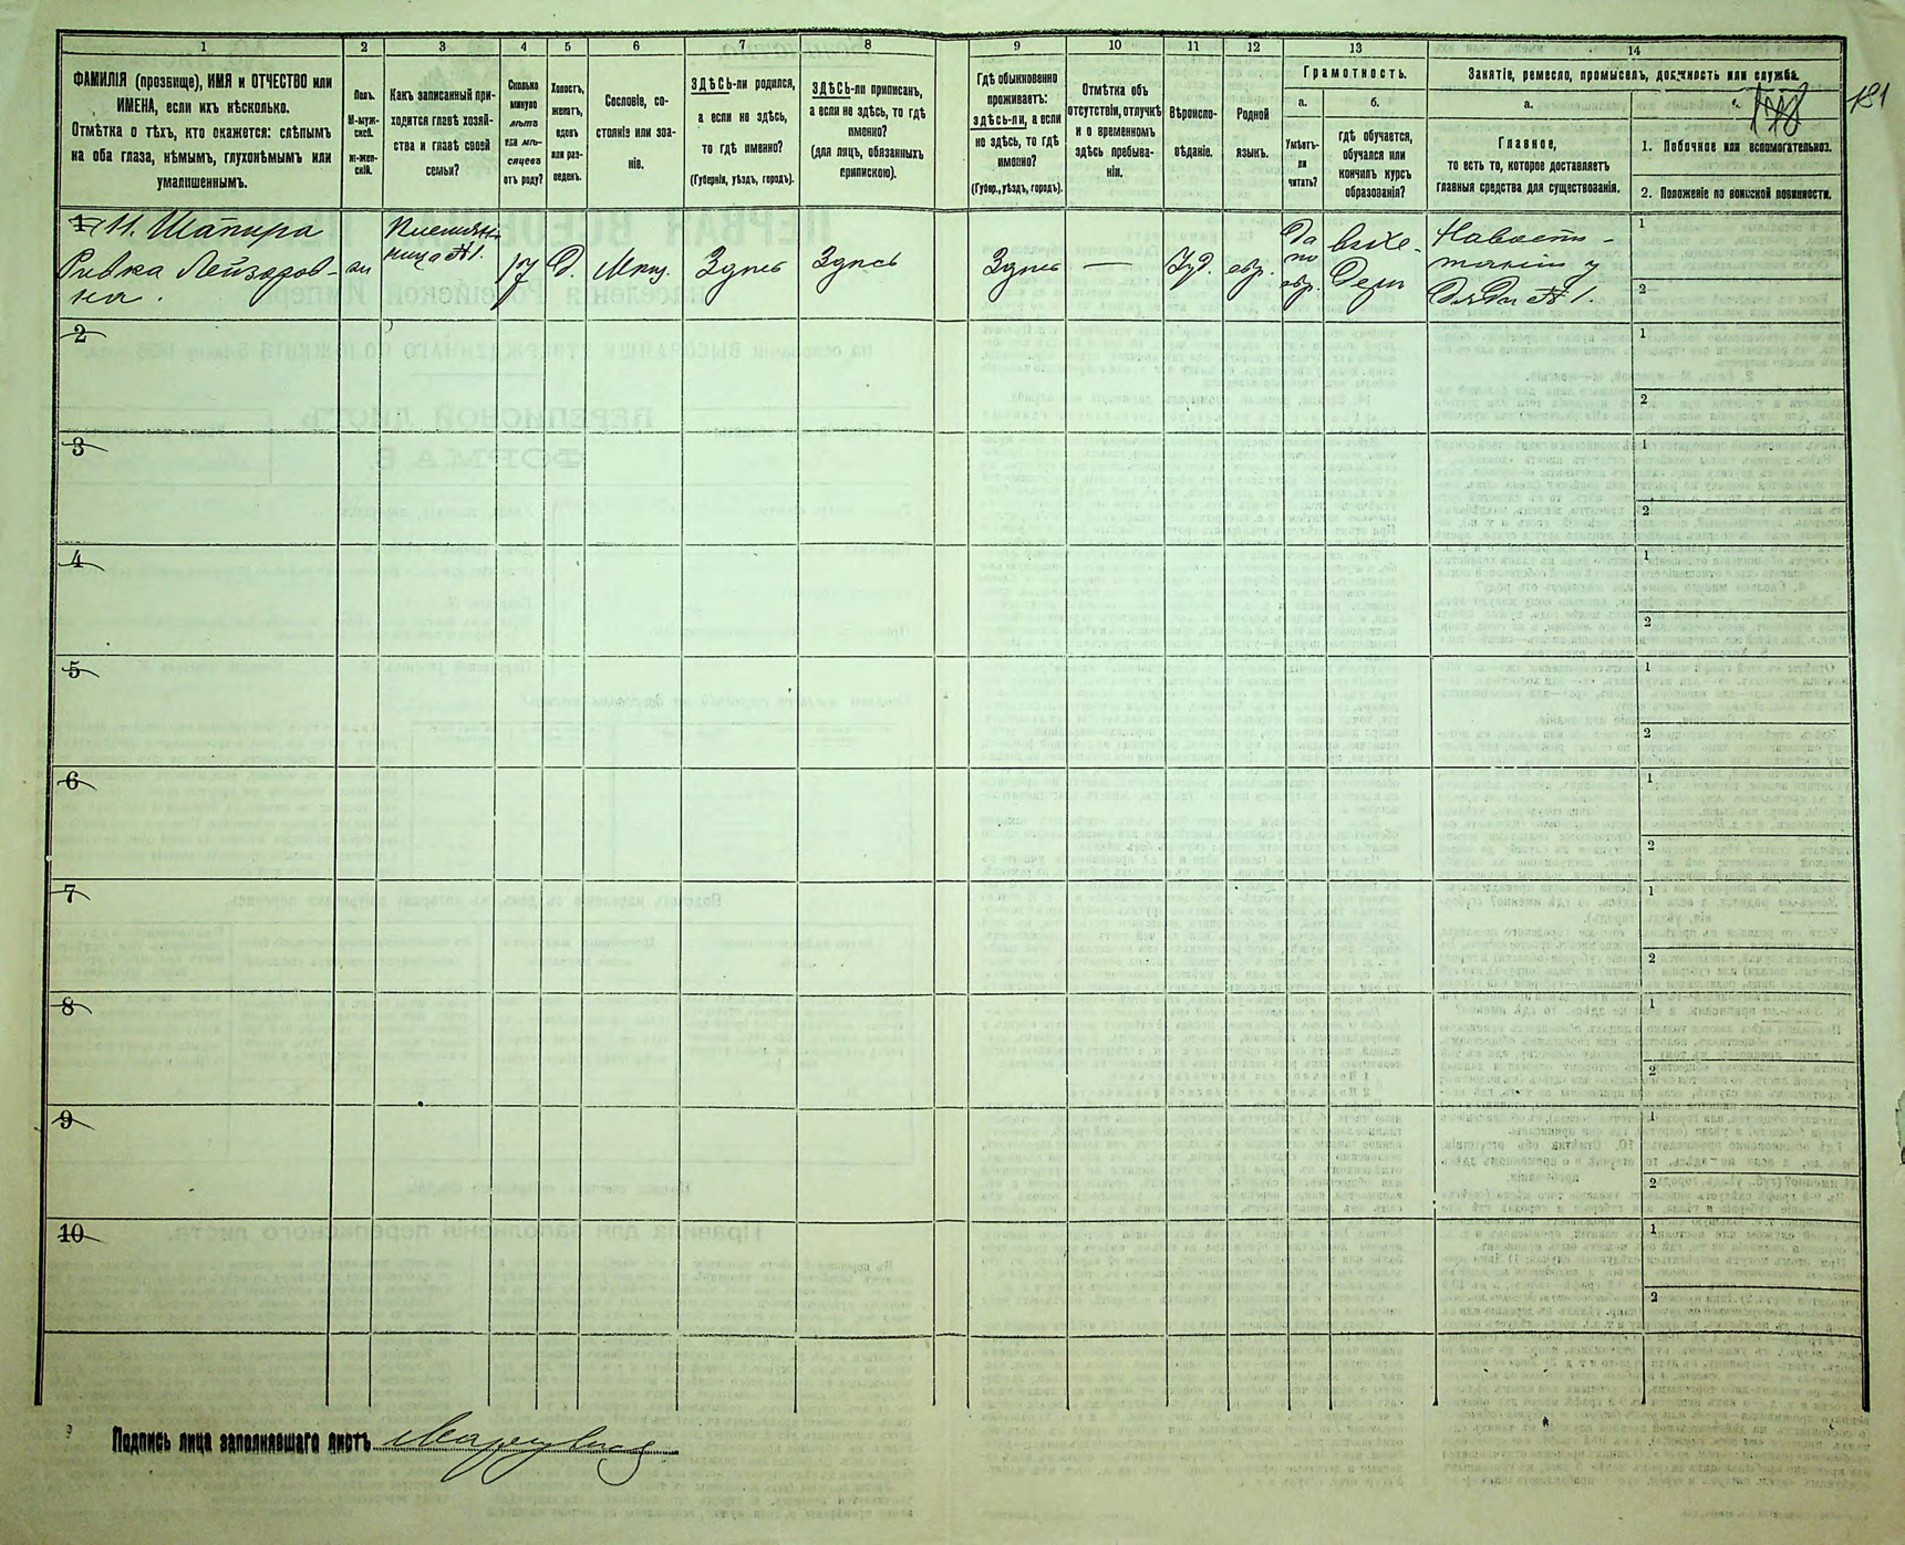 1
2
3
4
5
6
7
8
9
10
11
12
13
14
ФАМИЛІЯ (прозвище), ИМЯ и ОТЧЕСТВО или
ИМЕНА, если ихъ нѣсколько.
Отмѣтка о тѣхъ, кто окажется: слѣпымъ
на оба глаза, нѣмымъ, глухонѣмымъ или
умалишеннымъ.
Полъ.
М-муж-
ской.
ж-жен-
скій.
Какъ записанный при-
ходится главѣ хозяй-
ства и главѣ своей
семьи?
Сколько
минуло
лѣтъ
или мѣ-
сяцевъ
отъ роду?
Холостъ,
женатъ,
вдовъ
или раз-
веденъ.
Сословіе, со-
стояніе или зва-
ніе.
ЗДѢСЬ-ли родился,
а если не здѣсь,
то гдѣ именно?
(Губернія, уѣздъ, городъ).
ЗДѢСЬ-ли приписанъ,
а если не здѣсь, то гдѣ
именно?
(для лицъ, обязанныхъ
припискою).
Гдѣ обыкновенно
проживаетъ:
здѣсь-ли, а если
не здѣсь, то гдѣ
именно?
(Губер., уѣздъ, городъ).
Отмѣтка объ
отсутствіи, отлучкѣ
и о временномъ
здѣсь пребыва-
ніи.
Вѣроиспо-
вѣданіе.
Родной
языкъ.
Грамотность.
а.
Умѣетъ-
ли
читать?
б.
гдѣ обучается,
обучался или
кончилъ курсъ
образованія?
Занятіе, ремесло, промыселъ, должность или служба.
181
а.
Главное,
то есть то, которое доставляетъ
главныя средства для существованія.
1. Побочное или вспомогательное.
2. Положеніе по воинской повинности.
1
Шапира
Ривка Лейзоров-
на.
ж
Племян-
ница №1.
17
Д.
Мѣщ.
Здѣсь
Здѣсь
Здѣсь
—
Іуд.
евр.
Да
по
евр.
въ хе-
дерѣ
На воспи-
таніи у
дяди № 1.
1
2
2
1
2
3
1
2
4
1
2
5
1
2
6
1
2
7
1
2
8
1
2
9
1
2
10
1
2
Подпись лица заполнявшаго листъ